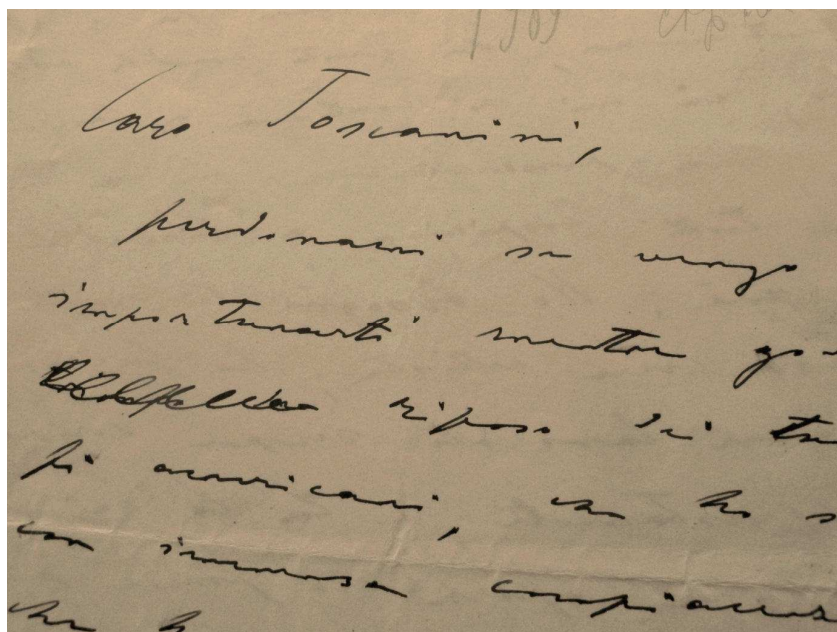 Caro Toscanini,
perdonami se vengo
importunarti mentre go-
riposo di
fi americani, che ho
con immensa
che h